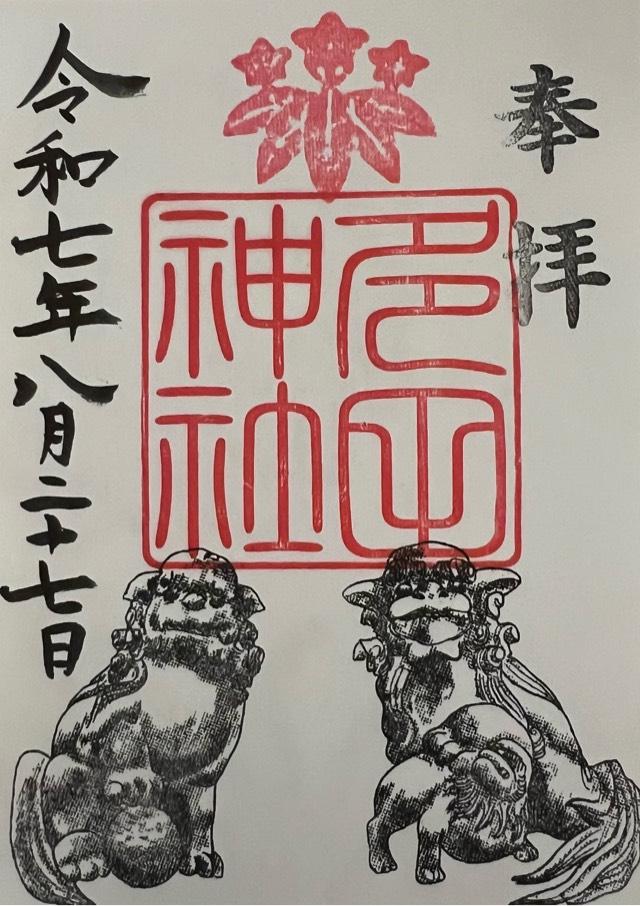 奉拝
多田
神社
令和七年八月二十七日